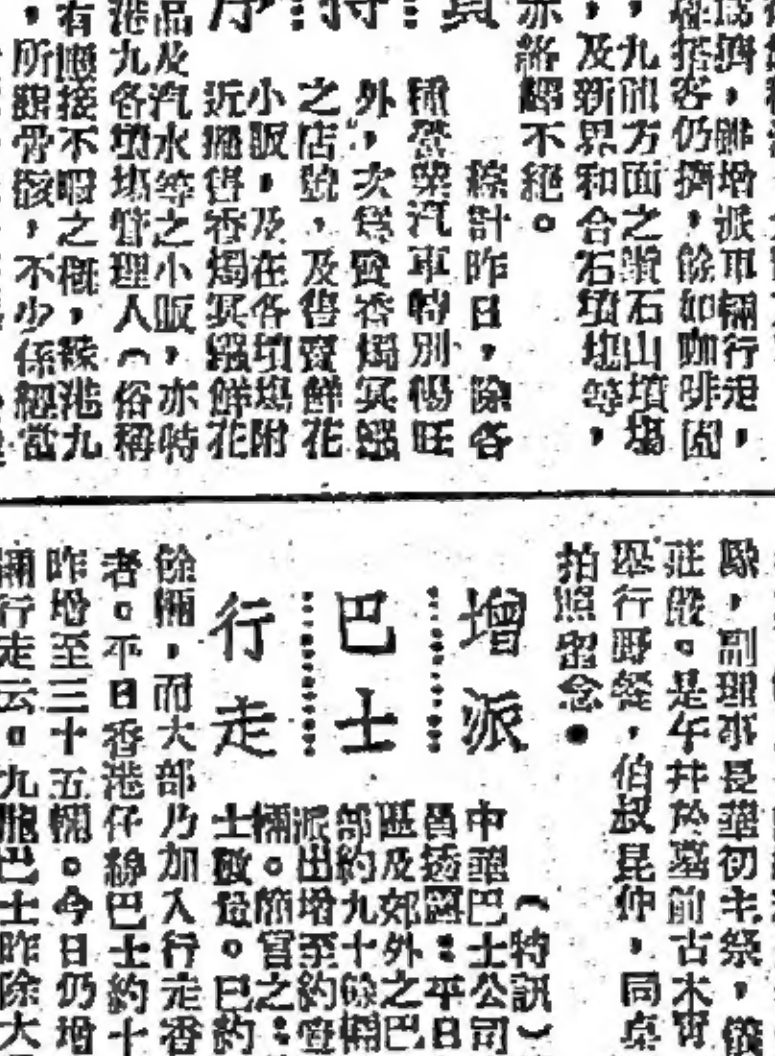 爲擠,聯增派車輛行走,
搭客仍擠,餘如咖啡園,
,九龍方面之鑽石山墳場
,及新界和合石墳塲等,
亦絡繹不絕。
綜計昨日,除各
種營業汽車特別暢旺
外,次爲賣香燭冥鏹
之店號,及售賣鮮花
小販,及在各墳塲附
近擺售香燭冥鏹鮮花
品及汽水等之小販,亦時
港九各墳塲管理人(俗稱
有應接不暇之槪,緣港九
,所觀骨骸,不少係經當
,副理事長華初主祭,儀
莊嚴。是午幷於墓前古木
舉行野餐,伯叔昆仲,同
拍照留念●
增派
巴士
行走
(特訊)
中華巴士公司
透露:平日
區及郊外之巴
部約九十餘輛
派出增至約壹
輛。簡言之:
士數量。已約
餘輛,而大部乃加入行走香
者。平日香港仔線巴士約十
昨增至三十五輛。今日仍增
輛行走云。九龍巴士昨除大